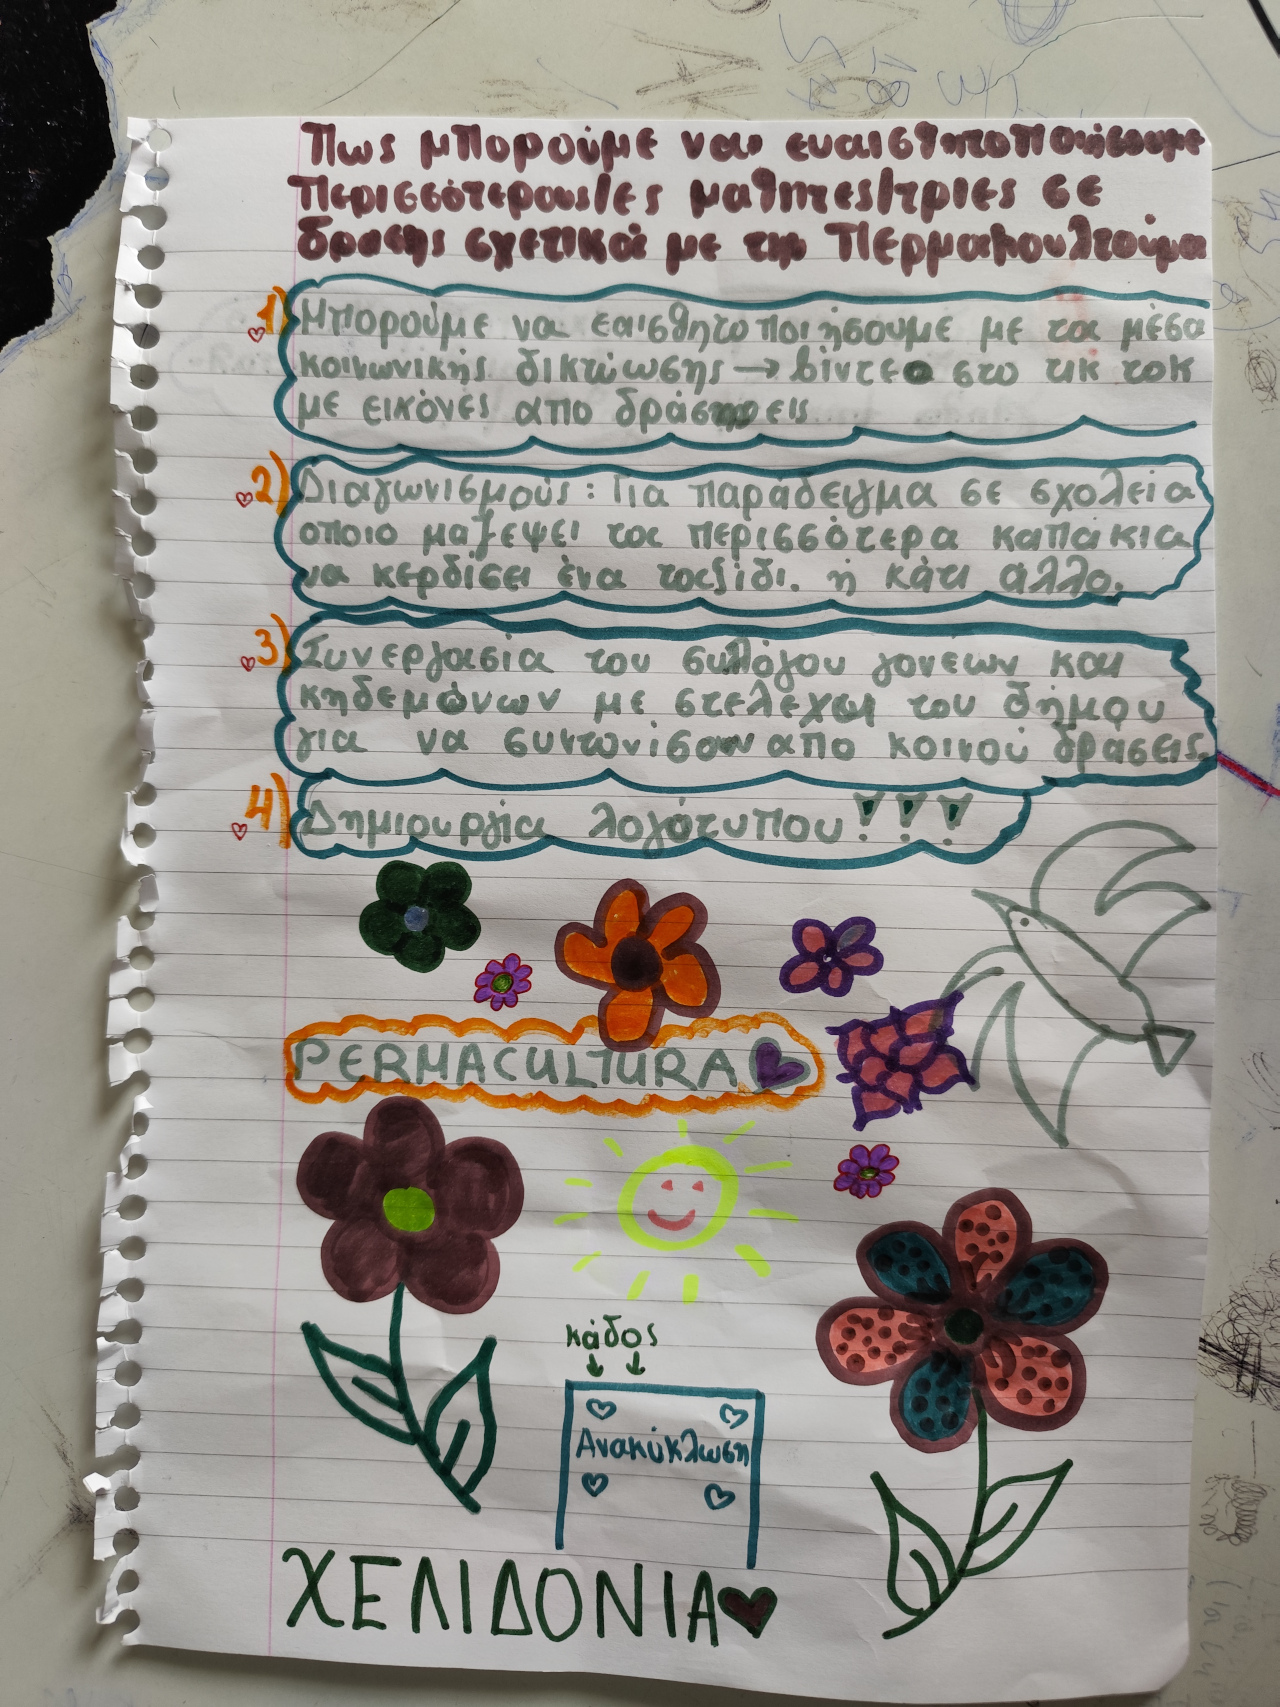 Πως μπορούμε να ευαισθητοποιήσουμε
περισσότερους/ες μαθητες/τριες σε
δρασης σχετικά με τη περμακουλτούρα
1) Μπορούμε να εαισθητοποιήσουμε με τα μέσα
κοινωνικής δικτύωσης → βίντεο στο τικ τοκ
με εικόνες απο δράσεις
2) Διαγωνισμούς: Για παράδειγμα σε σχολεία
οποιο μαζεψει τα περισσότερα καπάκια
να κερδίσει ένα ταξίδι. ή κάτι άλλο.
3) Συνεργασία του συλλόγου γονέων και
κηδεμόνων με στελέχη του δήμου
για να συντονίσουν απο κοινού δράσεις.
4) Δημιουργία λογότυπου!!!
PERMACULTURA
κάδος
Ανακύκλωση
ΧΕΛΙΔΟΝΙΑ